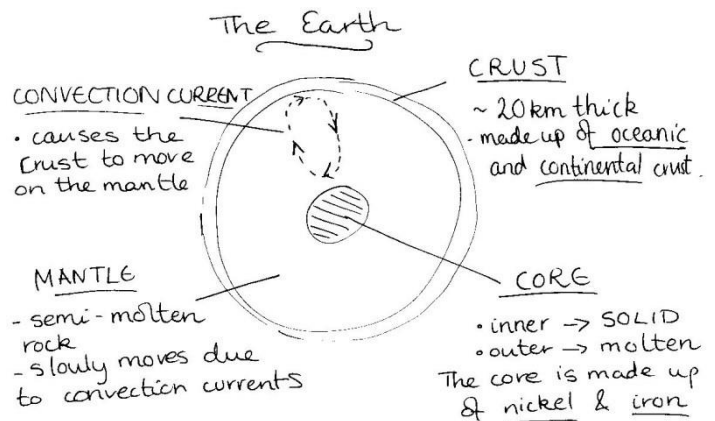 The Earth
CONVECTION CURRENT
• causes the
crust to move
on the mantle
CRUST
~ 20km thick
- made up of oceanic
and continental crust.
MANTLE
- semi-molten
rock
- slowly moves due
to convection currents
CORE
• inner → SOLID
• outer → molten
The core is made up
of nickel & iron